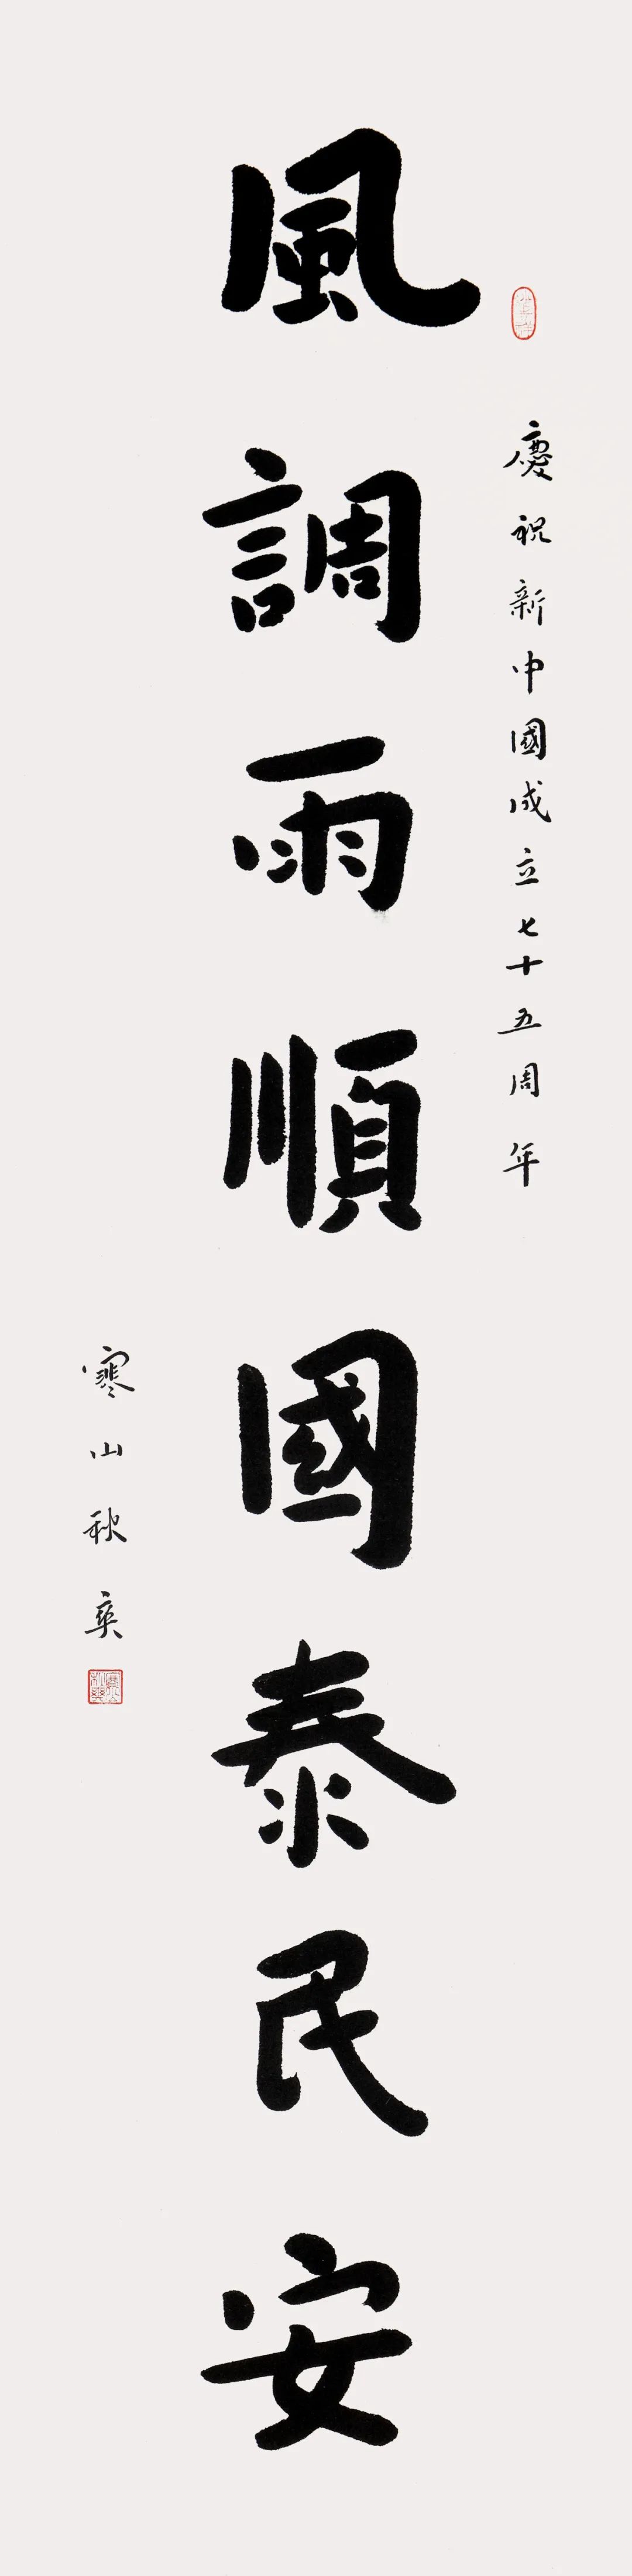 慶祝新中國成立七十五周年
風調雨順國泰民安
寒山秋爽